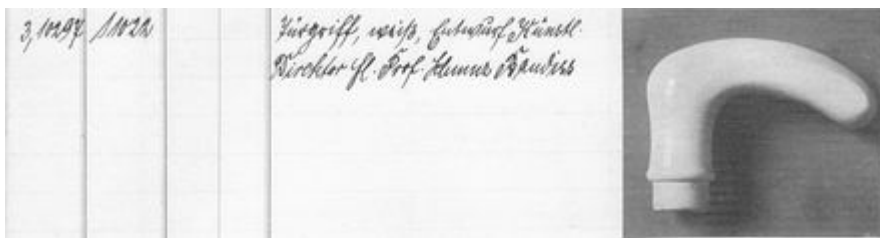 3,10297 11022 Türgriff, weiß, Entwurf Künstl.
Direktor H. Prof. Hanns Bandiss